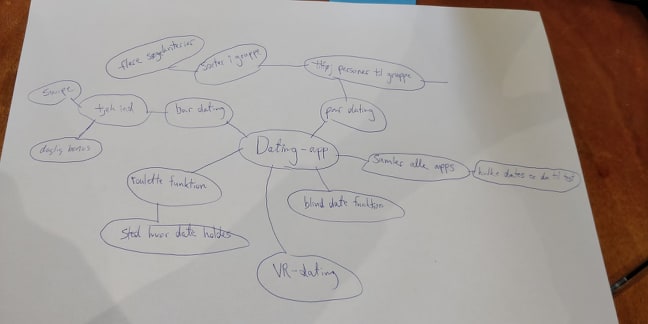 flere søgekriterier
Sorter i gruppe
personer til gruppe
Swipe
tjek ind
bar dating
par dating
daglig bonus
Dating-app
Samler alle apps
hvilke dates er de til
roulette funktion
blind date funktion
Sted hvor date holdes
VR-dating